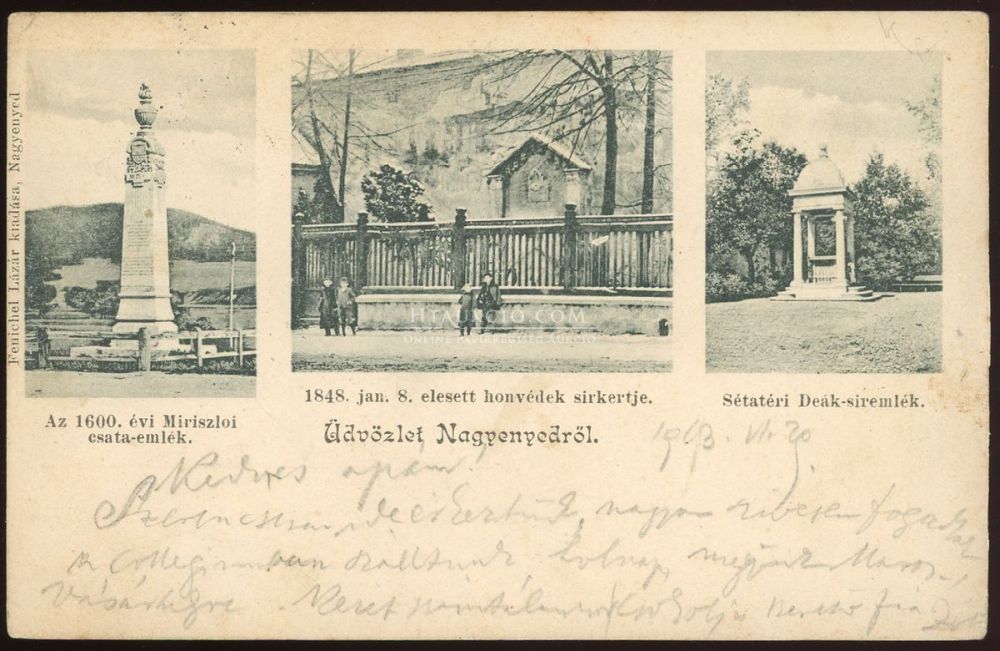 Fenichel Lázár kiadása, Nagyenyed
Az 1600. évi Miriszloi
csata-emlék.
1848. jan. 8. elesett honvédek sirkertje.
Sétatéri Deák-siremlék.
HTAURCIO.COM
ONLINE PAPÍRRÉGISÉG AUKCIÓ
Üdvözlet Nagyenyedről.
1903. VI. 20
Kedves apám!
Szerencsésen ideérkeztünk, nagyon szivesen fogadtak
a collegiumban szálltunk holnap megyünk Maros
Vásárhelyre. Kezet csókolja szerető fia